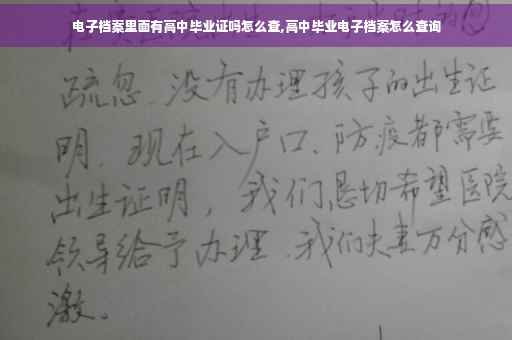 电子档案里面有高中毕业证吗怎么查,高中毕业电子档案怎么查询
疏忽.没有办理孩子的出生证
明.现在入户口、防疫都需要
出生证明,我们恳切希望医院
领导给予办理.我们夫妻万分感
激。